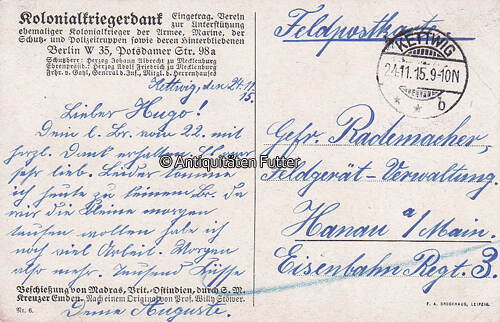 Kolonialkriegerdank Eingetrag. Verein zur Unterstützung
ehemaliger Kolonialkrieger der Armee, Marine, der
Schutz- und Polizeitruppen sowie deren Hinterbliebenen
Berlin W 35, Potsdamer Str. 98a
Schutzherr: Herzog Johann Albrecht zu Mecklenburg
Ehrenpräsid.: Herzog Adolf Friedrich zu Mecklenburg
Frhr. v. Gayl, General d. Inf., Mitgl. d. Herrenhauses
Feldpostkarte
KETTWIG
24.11.15. 9-10 N
* * b
Kettwig, den 24.11.15.
Lieber Hugo!
Dein l. Br. vom 22. mit
herzl. Dank erhalten.
sehr lieb. Leider komme
ich heute zu keinem Br. da
wir die Kleine morgen
taufen wollen habe ich
noch viel Arbeit. Morgen
also mehr. Tausend Küsse
Deine Auguste.
© Antiquitäten Futter
Gefr. Rademacher,
Feldgerät-Verwaltung
Hanau a/Main.
Eisenbahn Regt. 3.
Beschießung von Madras, Brit.-Ostindien, durch S. M.
Kreuzer Emden. Nach einem Original von Prof. Willy Stöwer.
Nr. 6.
F. A. BROCKHAUS, LEIPZIG.